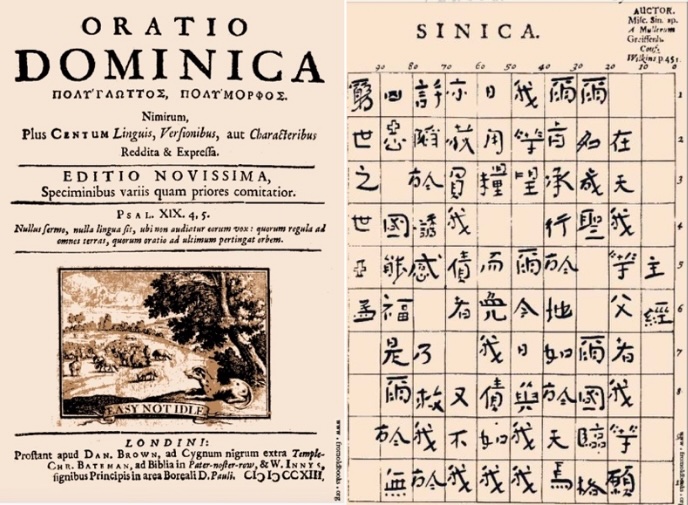 ORATIO
DOMINICA
ΠΟΛΥΓΛΩΤΤΟΣ, ΠΟΛΥΜΟΡΦΟΣ.
Nimirum,
Plus CENTUM Linguis, Versionibus, aut Characteribus
Reddita & Expressa.
EDITIO NOVISSIMA,
Speciminibus variis quam priores comitatior.
PSAL. XIX. 4, 5.
Nullus sermo, nulla lingua sit, ubi non audiatur eorum vox: quorum regula ad
omnes terras, quorum oratio ad ultimum pertingat orbem.
EASY NOT IDLE
LONDINI:
Prostant apud DAN. BROWN, ad Cygnum nigrum extra Temple-
CHR. BATEMAN, ad Biblia in Pater-noster-row, & W. INNYS,
signibus Principis in area Boreali D. Pauli. CIƆ IƆ CCXIII,
SINICA.
AUCTOR.
Misc. Sin. ap.
A Mullerum
Greiffenh.
Wilkins p. 451.
90 80 70 60 50 40 30 20 10 0
主經
在天我等父者我等願
爾名成聖爾國臨格
爾旨承行於地如於天焉
我等望爾今日與我我
日用糧而免我債如我
亦赦負我債者又不我
許陷於誘感乃救我於
凶惡國能福是爾於無
窮世之世亞孟